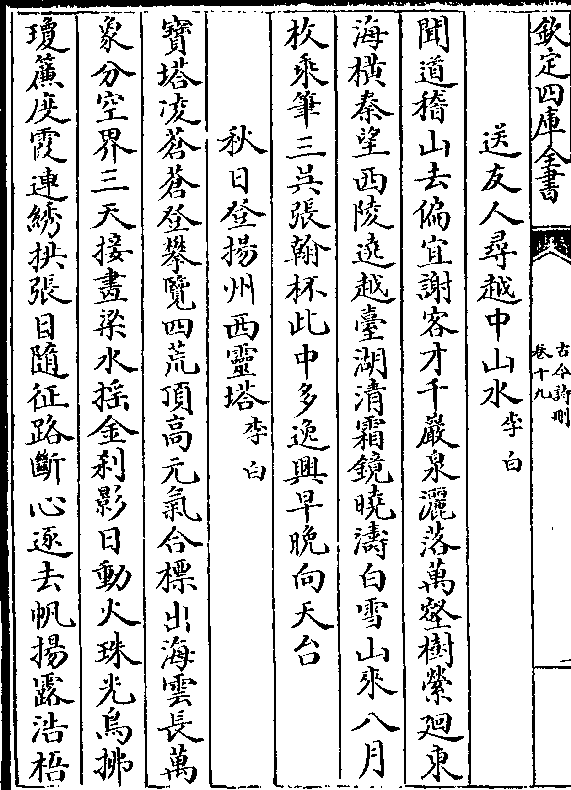 欽定四庫全書
古今詩刪
卷十九
送友人尋越中山水李白
聞道稽山去偏宜謝客才千巖泉灑落萬壑樹縈廻東
海橫秦望西陵遶越臺湖清霜鏡曉濤白雪山來八月
枚乘筆三吳張翰杯此中多逸興早晚向天台
秋日登揚州西靈塔李白
寶塔凌蒼蒼登攀覽四荒頂髙元氣合標出海雲長萬
象分空界三天接畫梁水揺金刹影日動火珠光鳥拂
瓊簾度霞連綉拱張目隨征路斷心逐去帆揚露浩梧